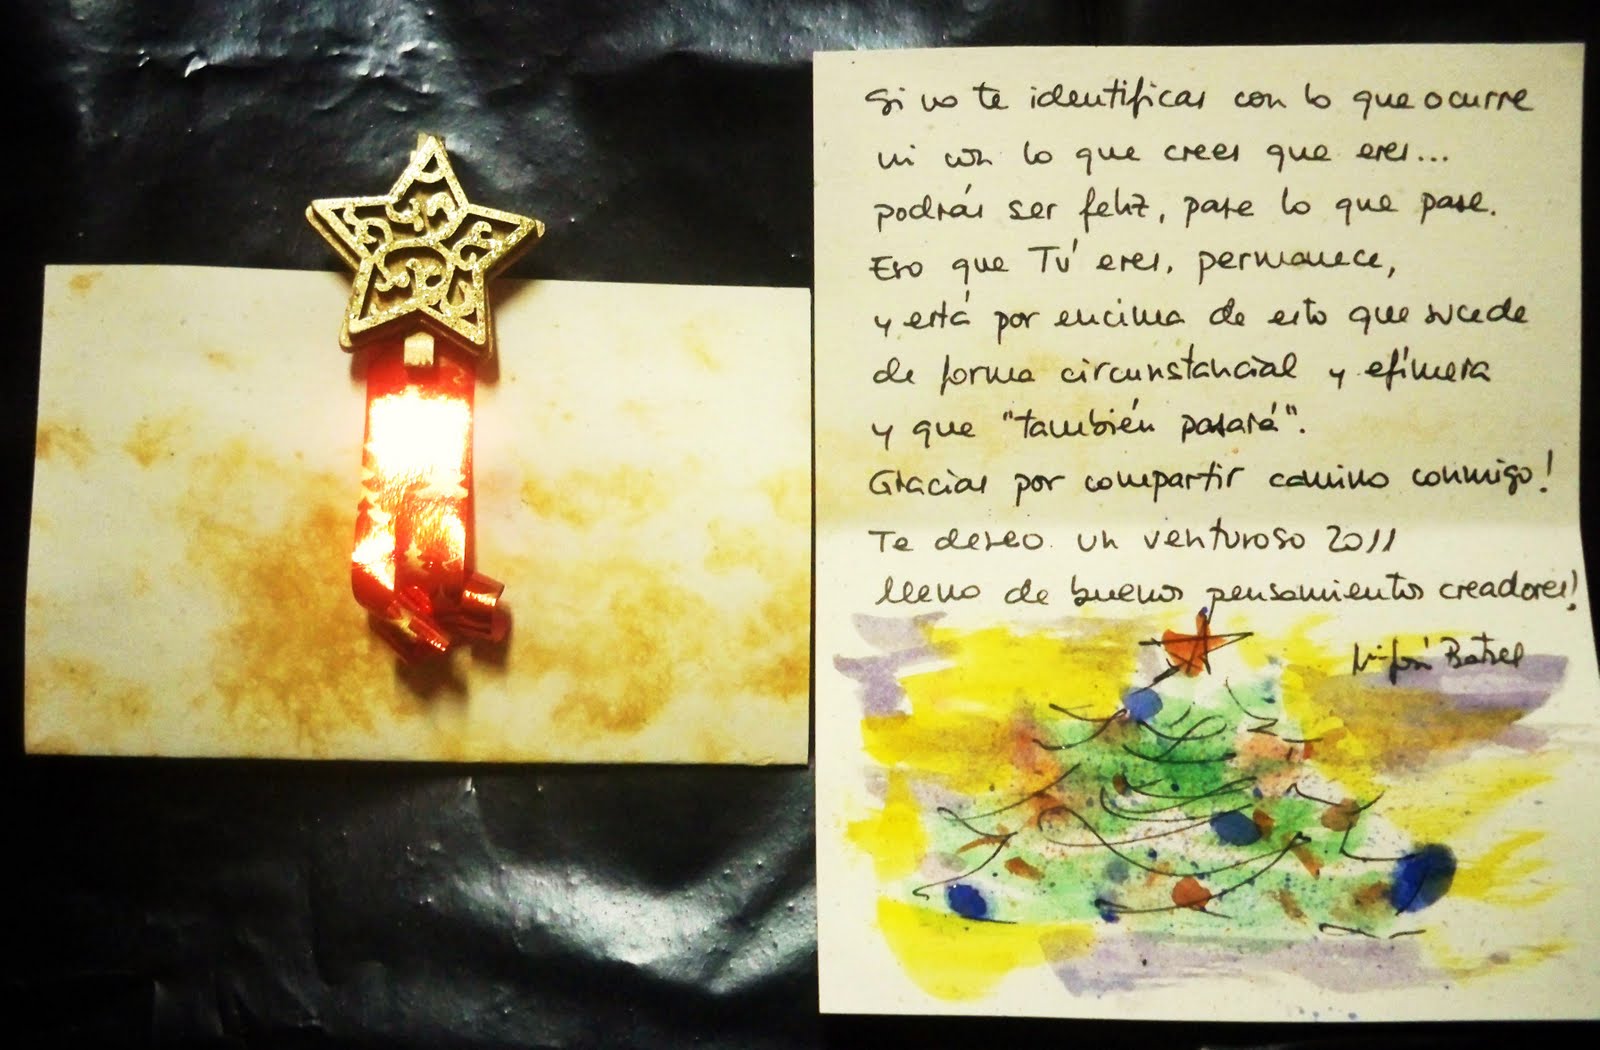 Si no te identificas con lo que ocurre
ni con lo que crees que eres...
podrás ser feliz, pase lo que pase.
Eso que Tú eres, permanece,
y está por encima de esto que sucede
de forma circunstancial y efímera
y que "también pasará".
Gracias por compartir camino conmigo!
Te deseo un venturoso 2011
lleno de buenos pensamientos creadores!